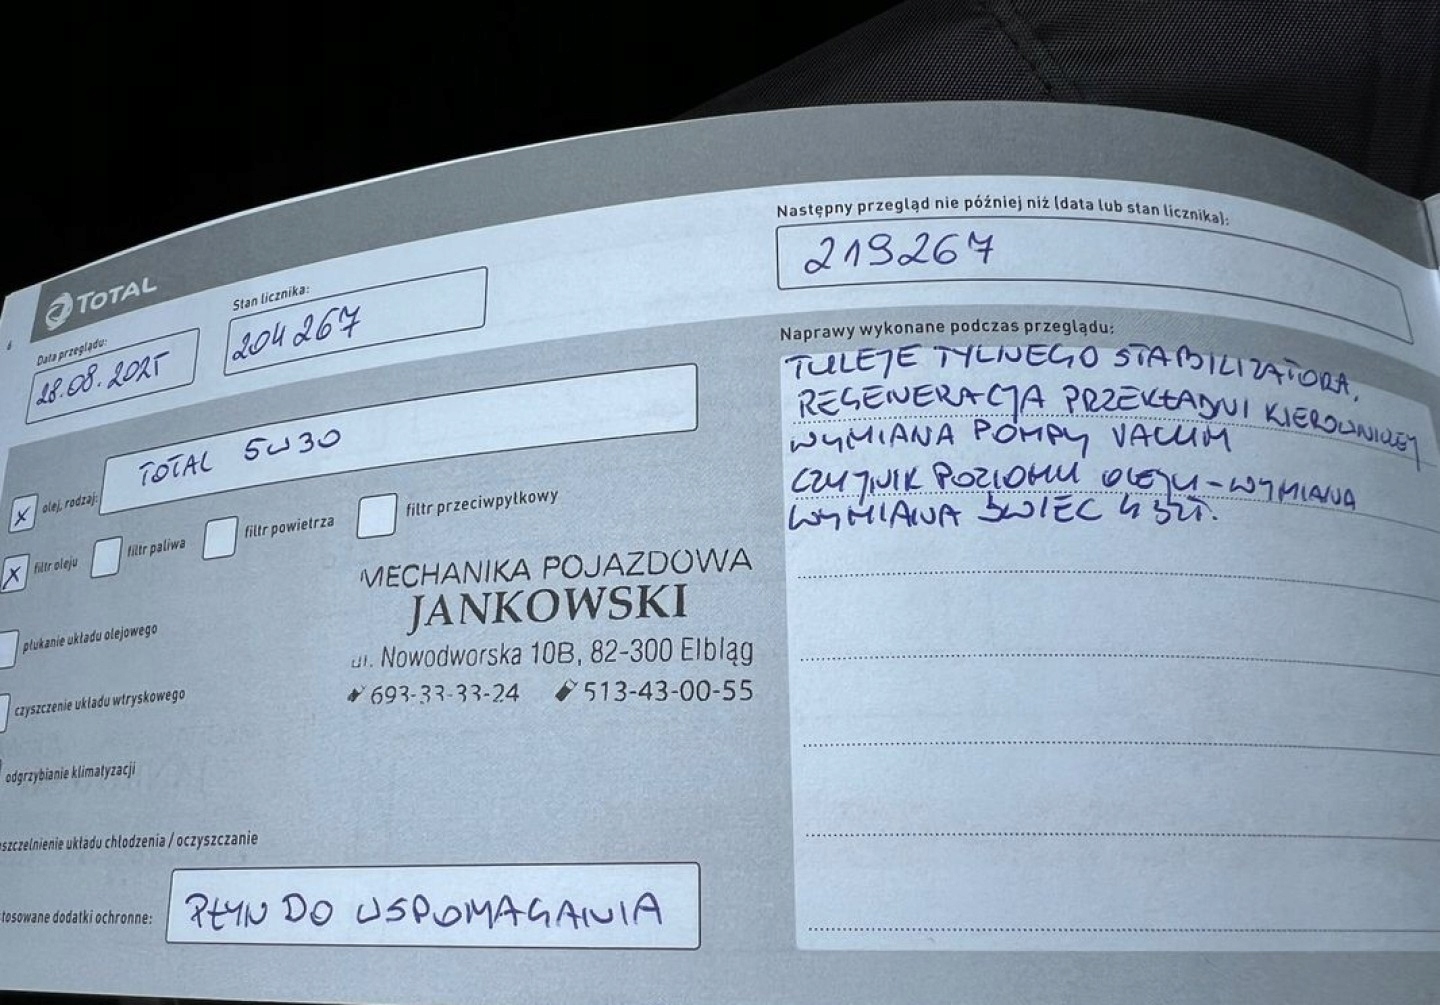 Następny przegląd nie później niż (data lub stan licznika):
219267
TOTAL
Stan licznika:
204 267
6
Data przeglądu:
28.08.2025
Naprawy wykonane podczas przeglądu:
TULEJE TYLNEGO STABILIZATORA,
REGENERACJA PRZEKŁADNI KIEROWNICZEJ
WYMIANA POMPY VACUM
CZUJNIK POZIOMU OLEJU-WYMIANA
WYMIANA ŚWIEC 4 SZT.
olej, rodzaj:
TOTAL 5W30
filtr oleju
filtr paliwa
filtr powietrza
filtr przeciwpyłkowy
MECHANIKA POJAZDOWA
JANKOWSKI
ul. Nowodworska 10B, 82-300 Elbląg
693-33-33-24 513-43-00-55
płukanie układu olejowego
czyszczenie układu wtryskowego
odgrzybianie klimatyzacji
szczelnienie układu chłodzenia / oczyszczanie
tosowane dodatki ochronne:
PŁYN DO WSPOMAGANIA